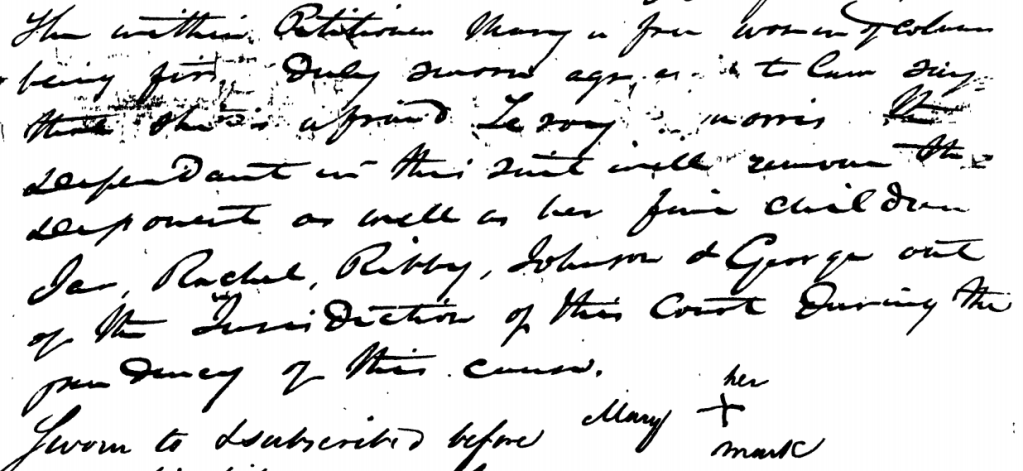 The within Petitioner Mary a free woman of Colour
being first Duly sworn agreeable to Law says
that she is afraid Leroy Morris the
defendant in this suit will remove the
deponent as well as her five children
Jas, Rachel, Ribby, Johnson & George out
of the Jurisdiction of this Court During the
pendency of this cause.
her
Mary X
mark
Sworn to & subscribed before